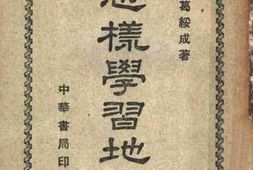 葛綏成著
怎樣學習地
中華書局印